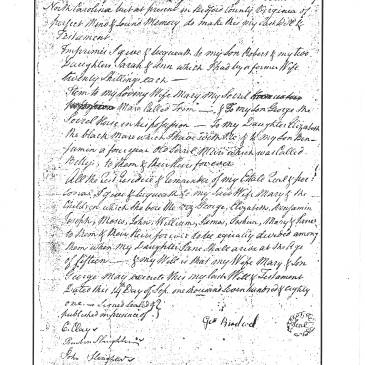 North Carolina but at present in Bedford County Virginia of
perfect Mind & Sound Memory do make this my Last Will &
Testament.
Imprimis I give & bequeath to my Son Robert & my two
Daughters Sarah & Ann which I had by a former Wife
twenty Shillings each —
Item to my loving Wife Mary my Sorril
Mare Called Trim — & to my Son George the
Sorrel Horse in his possession — To my Daughter Elizabeth
the black Mare which I have with me & to my Son Ben-
jamin a four year old Sorril Mare which was called
Molly; to them & their heirs forever
All the rest residue & remainder of my Estate Real & per-
sonal I give & bequeath to my said Wife Mary & the
Children which she bore me viz George, Elizabeth, Benjamin
Joseph, Moses, John, William, James, Joshua, Mary & Jane
to them & their heirs forever to be equally divided among
them when my Daughter Jane shall arive at the Age
of fifteen — & my Will is that my Wife Mary & Son
George May execute this my Last Will & Testament
Dated this 14 Day of Sep. one thousand seven hundred & eighty
one — Signed Sealed &
published in presence of
Geo
Seal
C. Clay
Reuben Slaughter
John Slaughter